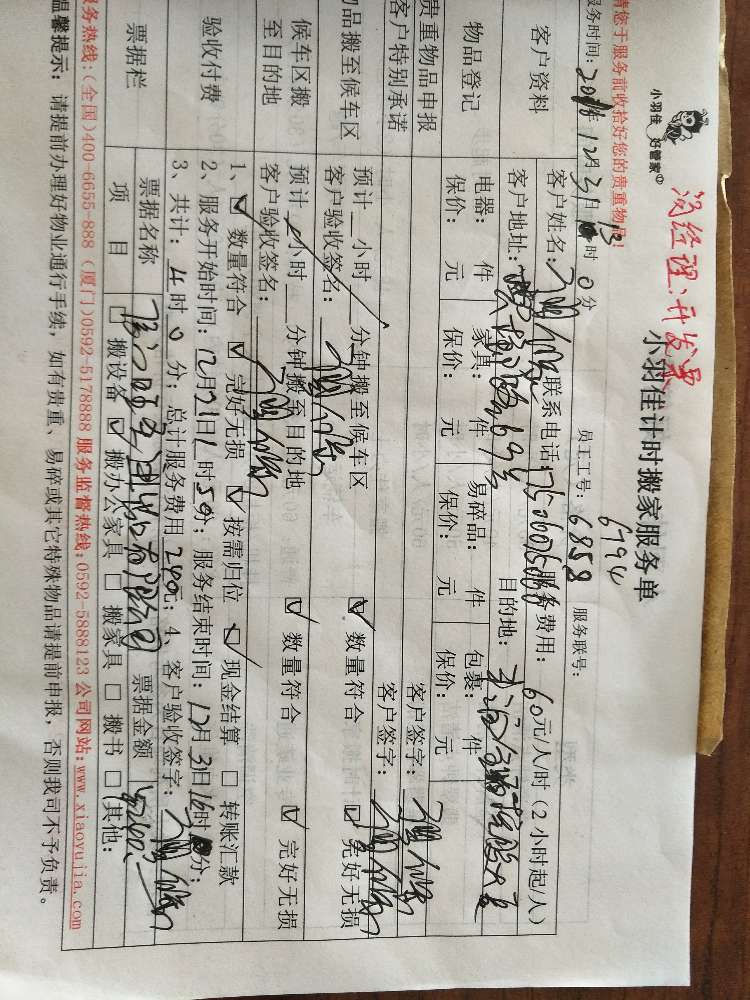 小羽佳 好管家
没经理:开发票
小羽佳计时搬家服务单
6794
请您于服务前收拾好您的贵重物品!
员工工号: 6858 服务联号:
服务时间: 年12月3日 时0分
客户资料
客户姓名: 联系电话: 服务费用: 60元/人/时(2小时起/人)
客户地址: 目的地:
物品登记
电器: 件 家具: 件 易碎品: 件 包裹: 件
保价: 元 保价: 元 保价: 元 保价: 元
贵重物品申报
客户签字:
客户特别承诺
客户签字:
物品搬至候车区
预计 小时 分钟搬至候车区 数量符合 完好无损
客户验收签名:
候车区搬至目的地
预计 小时 分钟搬至目的地 数量符合 完好无损
客户验收签名:
验收付费
1、 数量符合 完好无损 按需归位 现金结算 转账汇款
2、服务开始时间: 12月 日 时50分; 服务结束时间: 12月3日16时 分;
3、共计: 4时0分; 总计服务费用240元; 4、客户验收签字:
票据栏
票据名称 票据金额
项目 搬设备 搬办公家具 搬家具 搬书 其他:
服务热线:(全国)400-6655-888 (厦门)0592-5178888 服务监督热线:0592-5888123 公司网站:www.xiaoyujia.com
温馨提示: 请提前办理好物业通行手续, 如有贵重、易碎或其它特殊物品请提前申报, 否则我司不予负责。